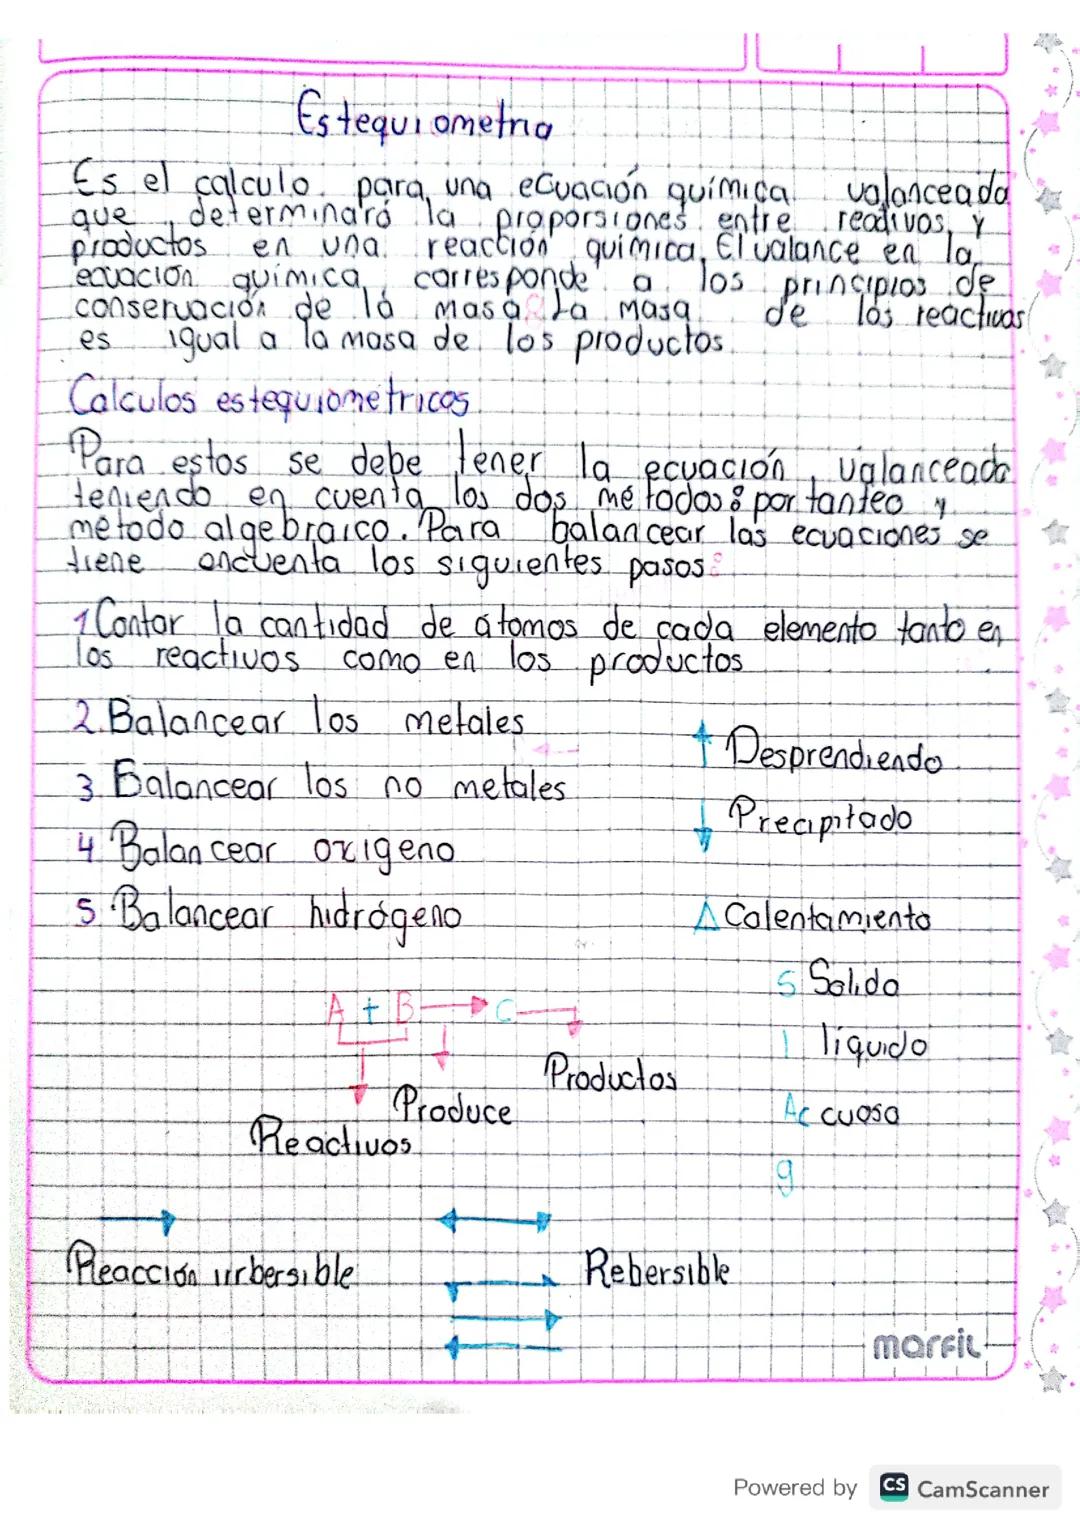 Estequiometria
Es el calculo para una ecuación química valanceada
que determinará la proporsiones entre reactivos y
productos en una reacción química, El valance en la
ecuación química, corresponde a los principios de
conservación de la masa La masa de los reactivos
es igual a la masa de los productos.
Calculos estequiometricos
Para estos se debe tener la ecuación valanceada
teniendo en cuenta los dos métodos: por tanteo y
metodo algebraico. Para balancear las ecuaciones se
tiene encuenta los siguientes pasos:
1 Contar la cantidad de átomos de cada elemento tanto en
los reactivos como en los productos
2. Balancear los metales
↑ Desprendiendo
3. Balancear los no metales
↓ Precipitado
4. Balancear oxigeno
5. Balancear hidrógeno
Δ Calentamiento
S Solido
A + B → C →
l líquido
Productos
Produce
Ac cuosa
Reactivos
g
→ ↔
Reacción iirbersible
Rebersible
marfil
Powered by CS CamScanner